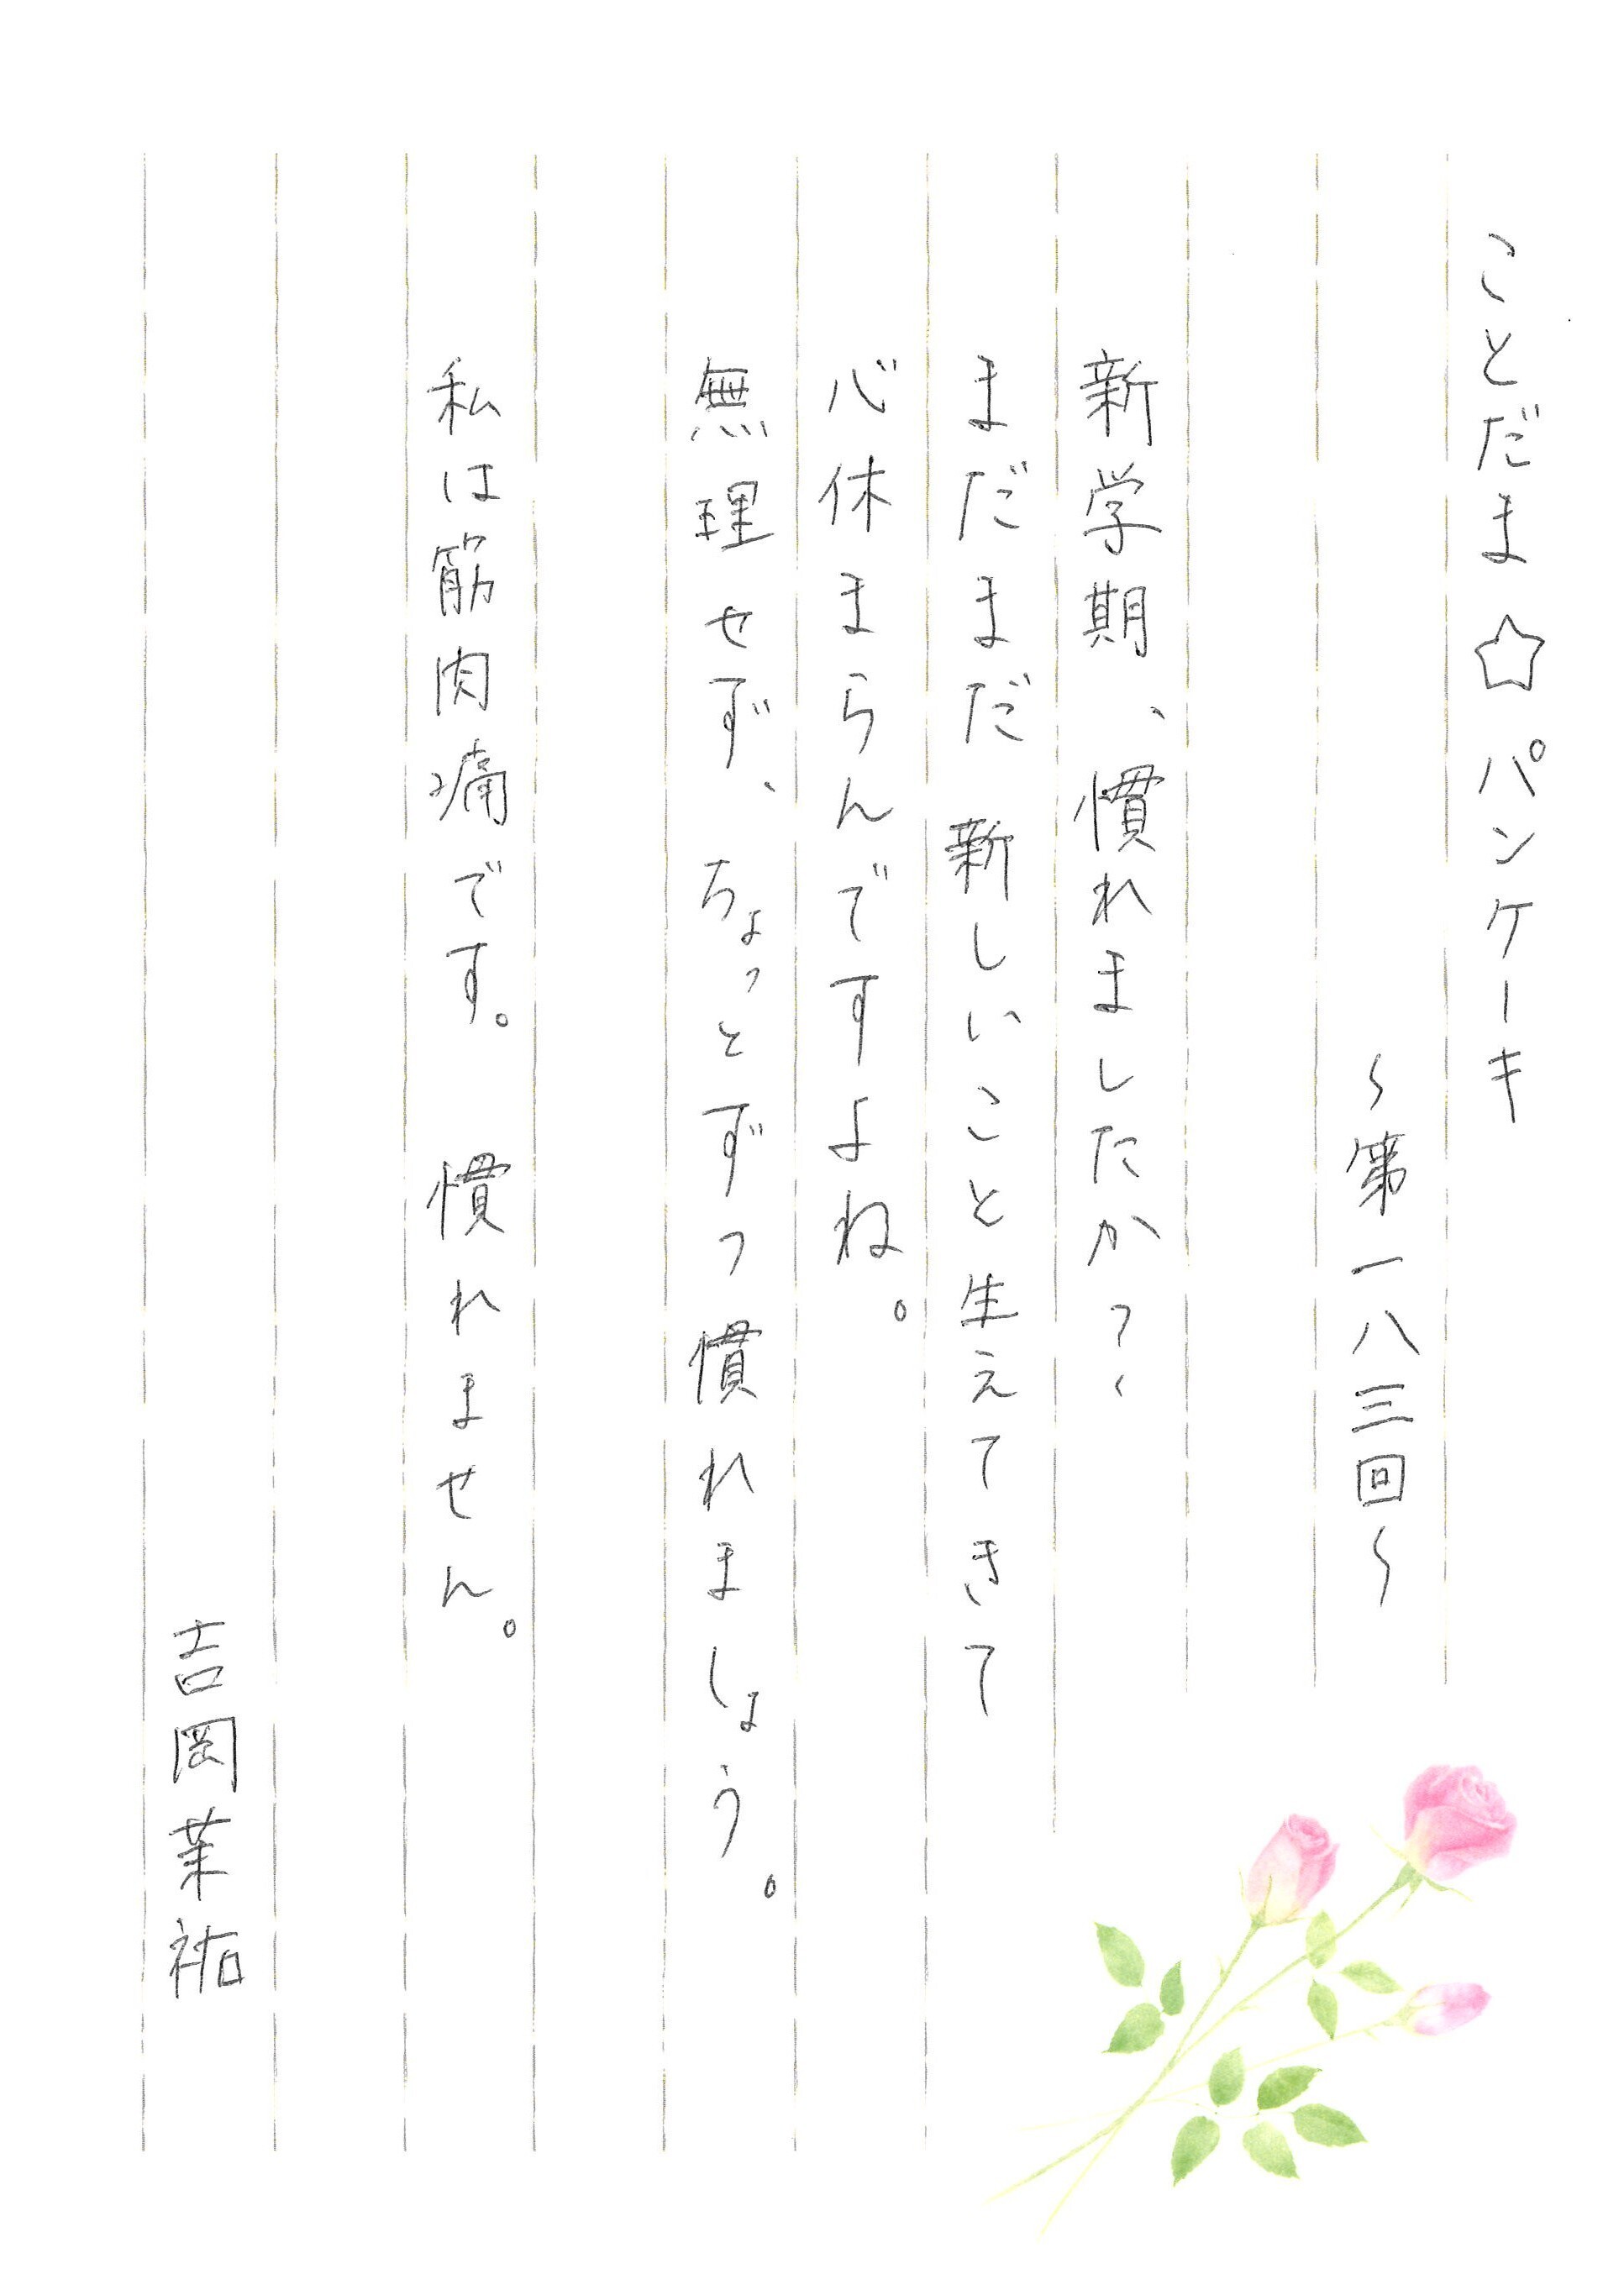 ことだま☆パンケーキ
～第一八三回～
新学期、慣れましたか？
まだまだ新しいこと生えてきて
心休まらんですよね。
無理せず、ちょっとずつ慣れましょう。
私は筋肉痛です。 慣れません。
吉岡茉祐